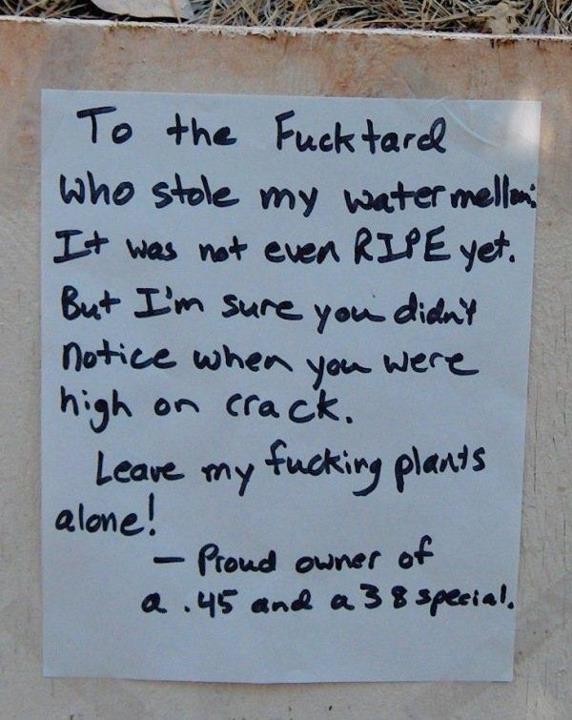 To the Fucktard
who stole my watermellon:
It was not even RIPE yet.
But I'm sure you didn't
notice when you were
high on crack.
Leave my fucking plants
alone!
— Proud owner of
a .45 and a 38 special.